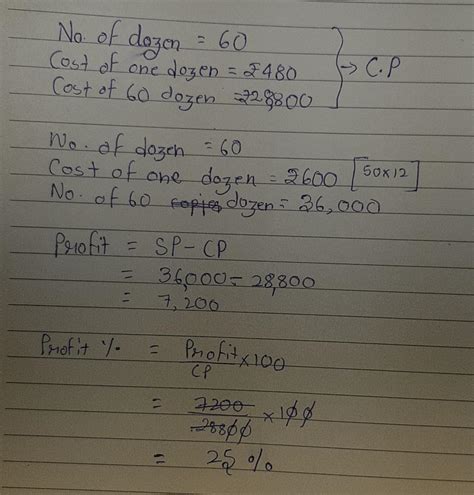 No. of dozen = 60
Cost of one dozen = ₹480
Cost of 60 dozen = ₹28,800
→ C.P
No. of dozen = 60
Cost of one dozen = ₹600 [50x12]
No. of 60 copies dozen = 36,000
Profit = SP - CP
= 36,000 - 28,800
= 7,200
Profit % = Profit/CP x 100
= 7200/28800 x 100
= 25 %